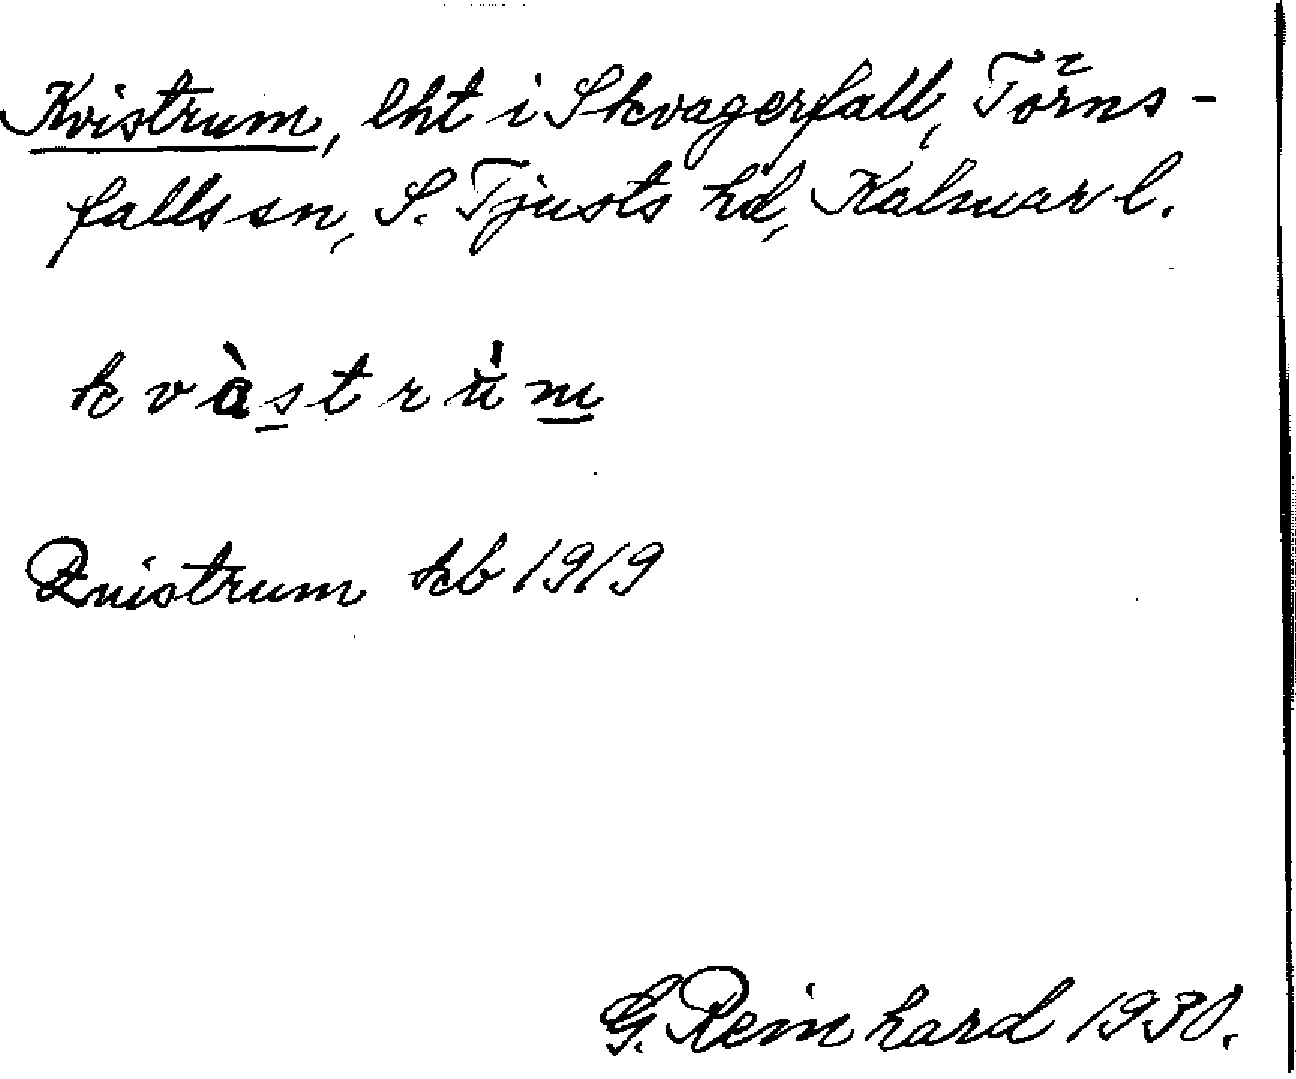 Kvistrum, lht i Skvagerfall, Törns-
falls sn, S. Tjusts hd, Kalmar l.
kvàstrùm
Qvistrum kb 1919
G. Reinhard 1930.